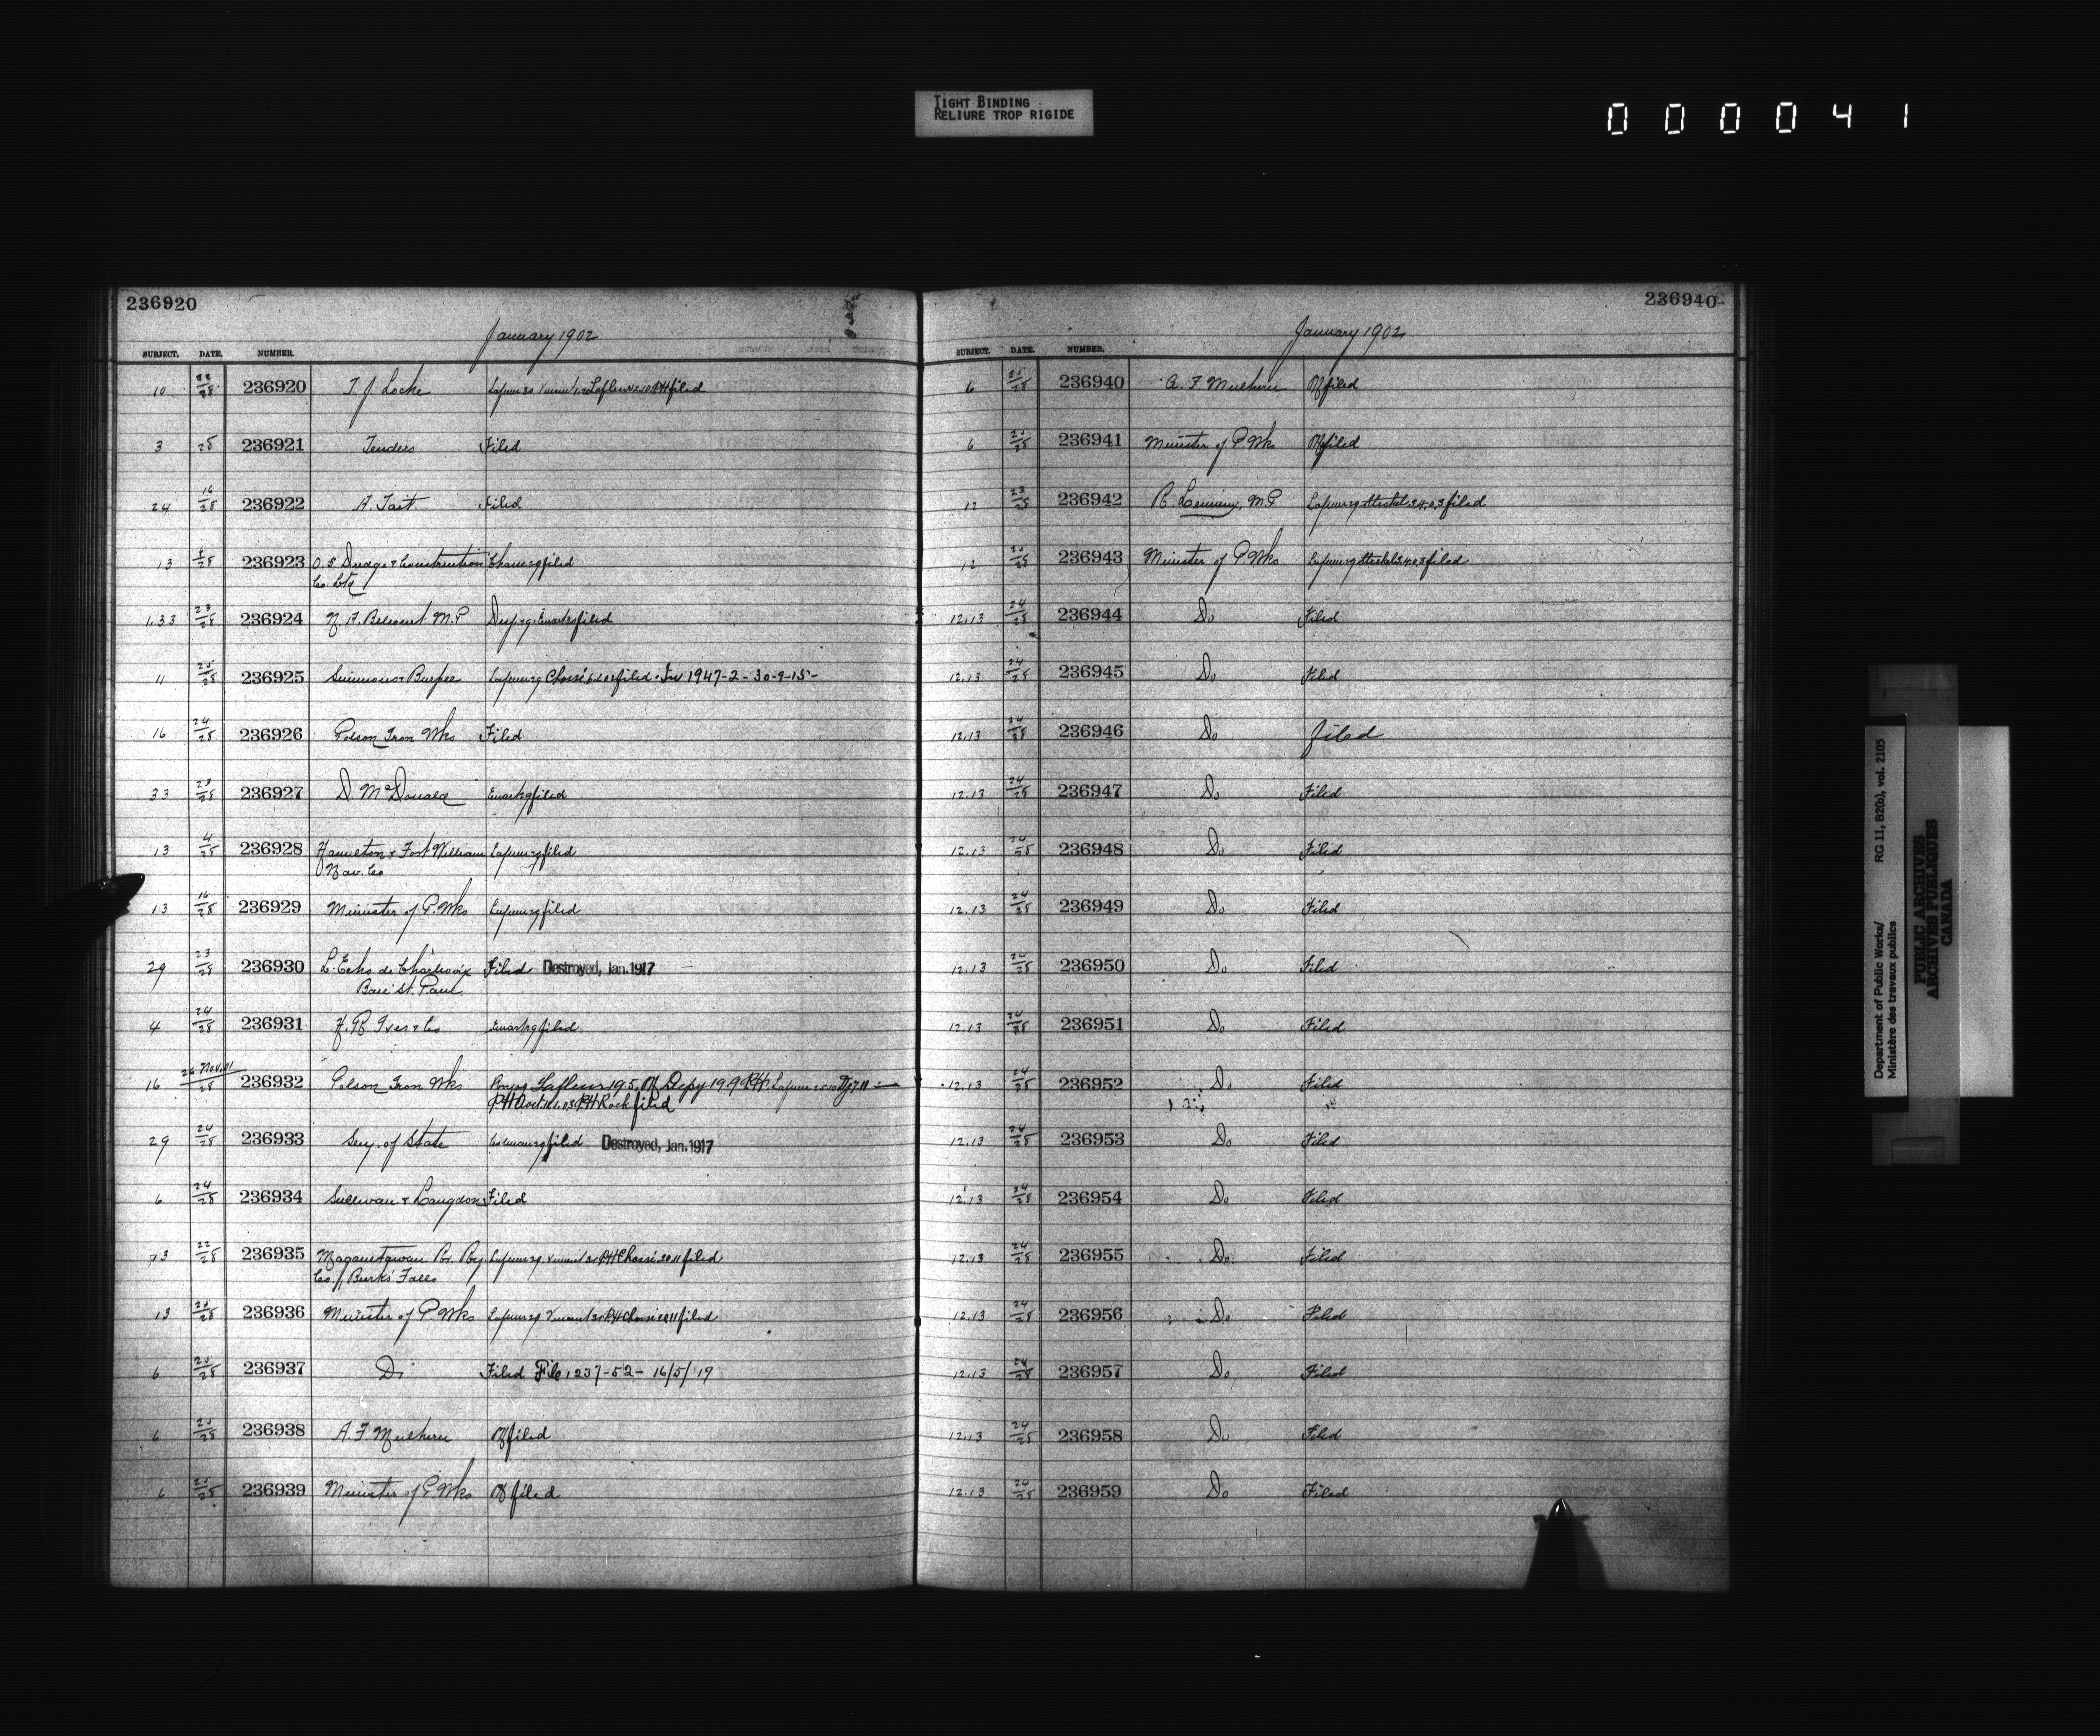 TIGHT BINDING
RELIURE TROP RIGIDE
000041
236920
January 1902
SUBJECT. DATE. NUMBER.
10 22/28 236920 T J Locke filed
3 28 236921 Tenders Filed
24 16/28 236922 A. Tait Filed
13 236923 O.S. Dredge & Construction filed
Co.
1.33 23/28 236924 N. A. Belcourt M.P filed
11 25/28 236925 Simmons & Burpee filed 1947-2-30-9-15-
16 24/28 236926 Polson Iron Wks Filed
33 23/28 236927 D. McDonald filed
13 4/28 236928 Hamilton & Fort William filed
Nav. Co
13 16/28 236929 Minister of P. Wks filed
29 23/28 236930 L'Echo de Charlevoix Filed Destroyed, Jan. 1917
Baie St. Paul
4 24/28 236931 H. R Ives & Co filed
16 26 Nov. 01/28 236932 Polson Iron Wks Lafleur 19.5
filed
29 24/28 236933 Secy. of State filed Destroyed, Jan. 1917
6 24/28 236934 Sullivan & Langdon Filed
22/28 236935 Maganetawan Rr. filed
Co., Burk's Falls
13 25/28 236936 Minister of P. Wks filed
6 25/28 236937 Do Filed File 1237-52- 16/5/19
6 25/28 236938 A. F. Mulhern filed
6 25/28 236939 Minister of P. Wks filed
236940
January 1902
SUBJECT. DATE. NUMBER.
6 25/28 236940 A. F. Mulhern filed
6 25/28 236941 Minister of P. Wks filed
12 23/28 236942 R. Lemieux, M.P filed
12 25/28 236943 Minister of P. Wks filed
12.13 24/28 236944 Do Filed
12.13 24/28 236945 Do Filed
12.13 24/28 236946 Do filed
12.13 24/28 236947 Do Filed
12.13 24/28 236948 Do Filed
12.13 24/28 236949 Do Filed
12.13 24/28 236950 Do Filed
12.13 24/28 236951 Do Filed
12.13 24/28 236952 Do Filed
12.13 24/28 236953 Do Filed
12.13 24/28 236954 Do Filed
12.13 24/28 236955 Do Filed
12.13 24/28 236956 Do Filed
12.13 24/28 236957 Do Filed
12.13 24/28 236958 Do Filed
12.13 24/28 236959 Do Filed
Department of Public Works/ RG 11, B2(b), vol. 2105
Ministère des travaux publics
PUBLIC ARCHIVES
ARCHIVES PUBLIQUES
CANADA